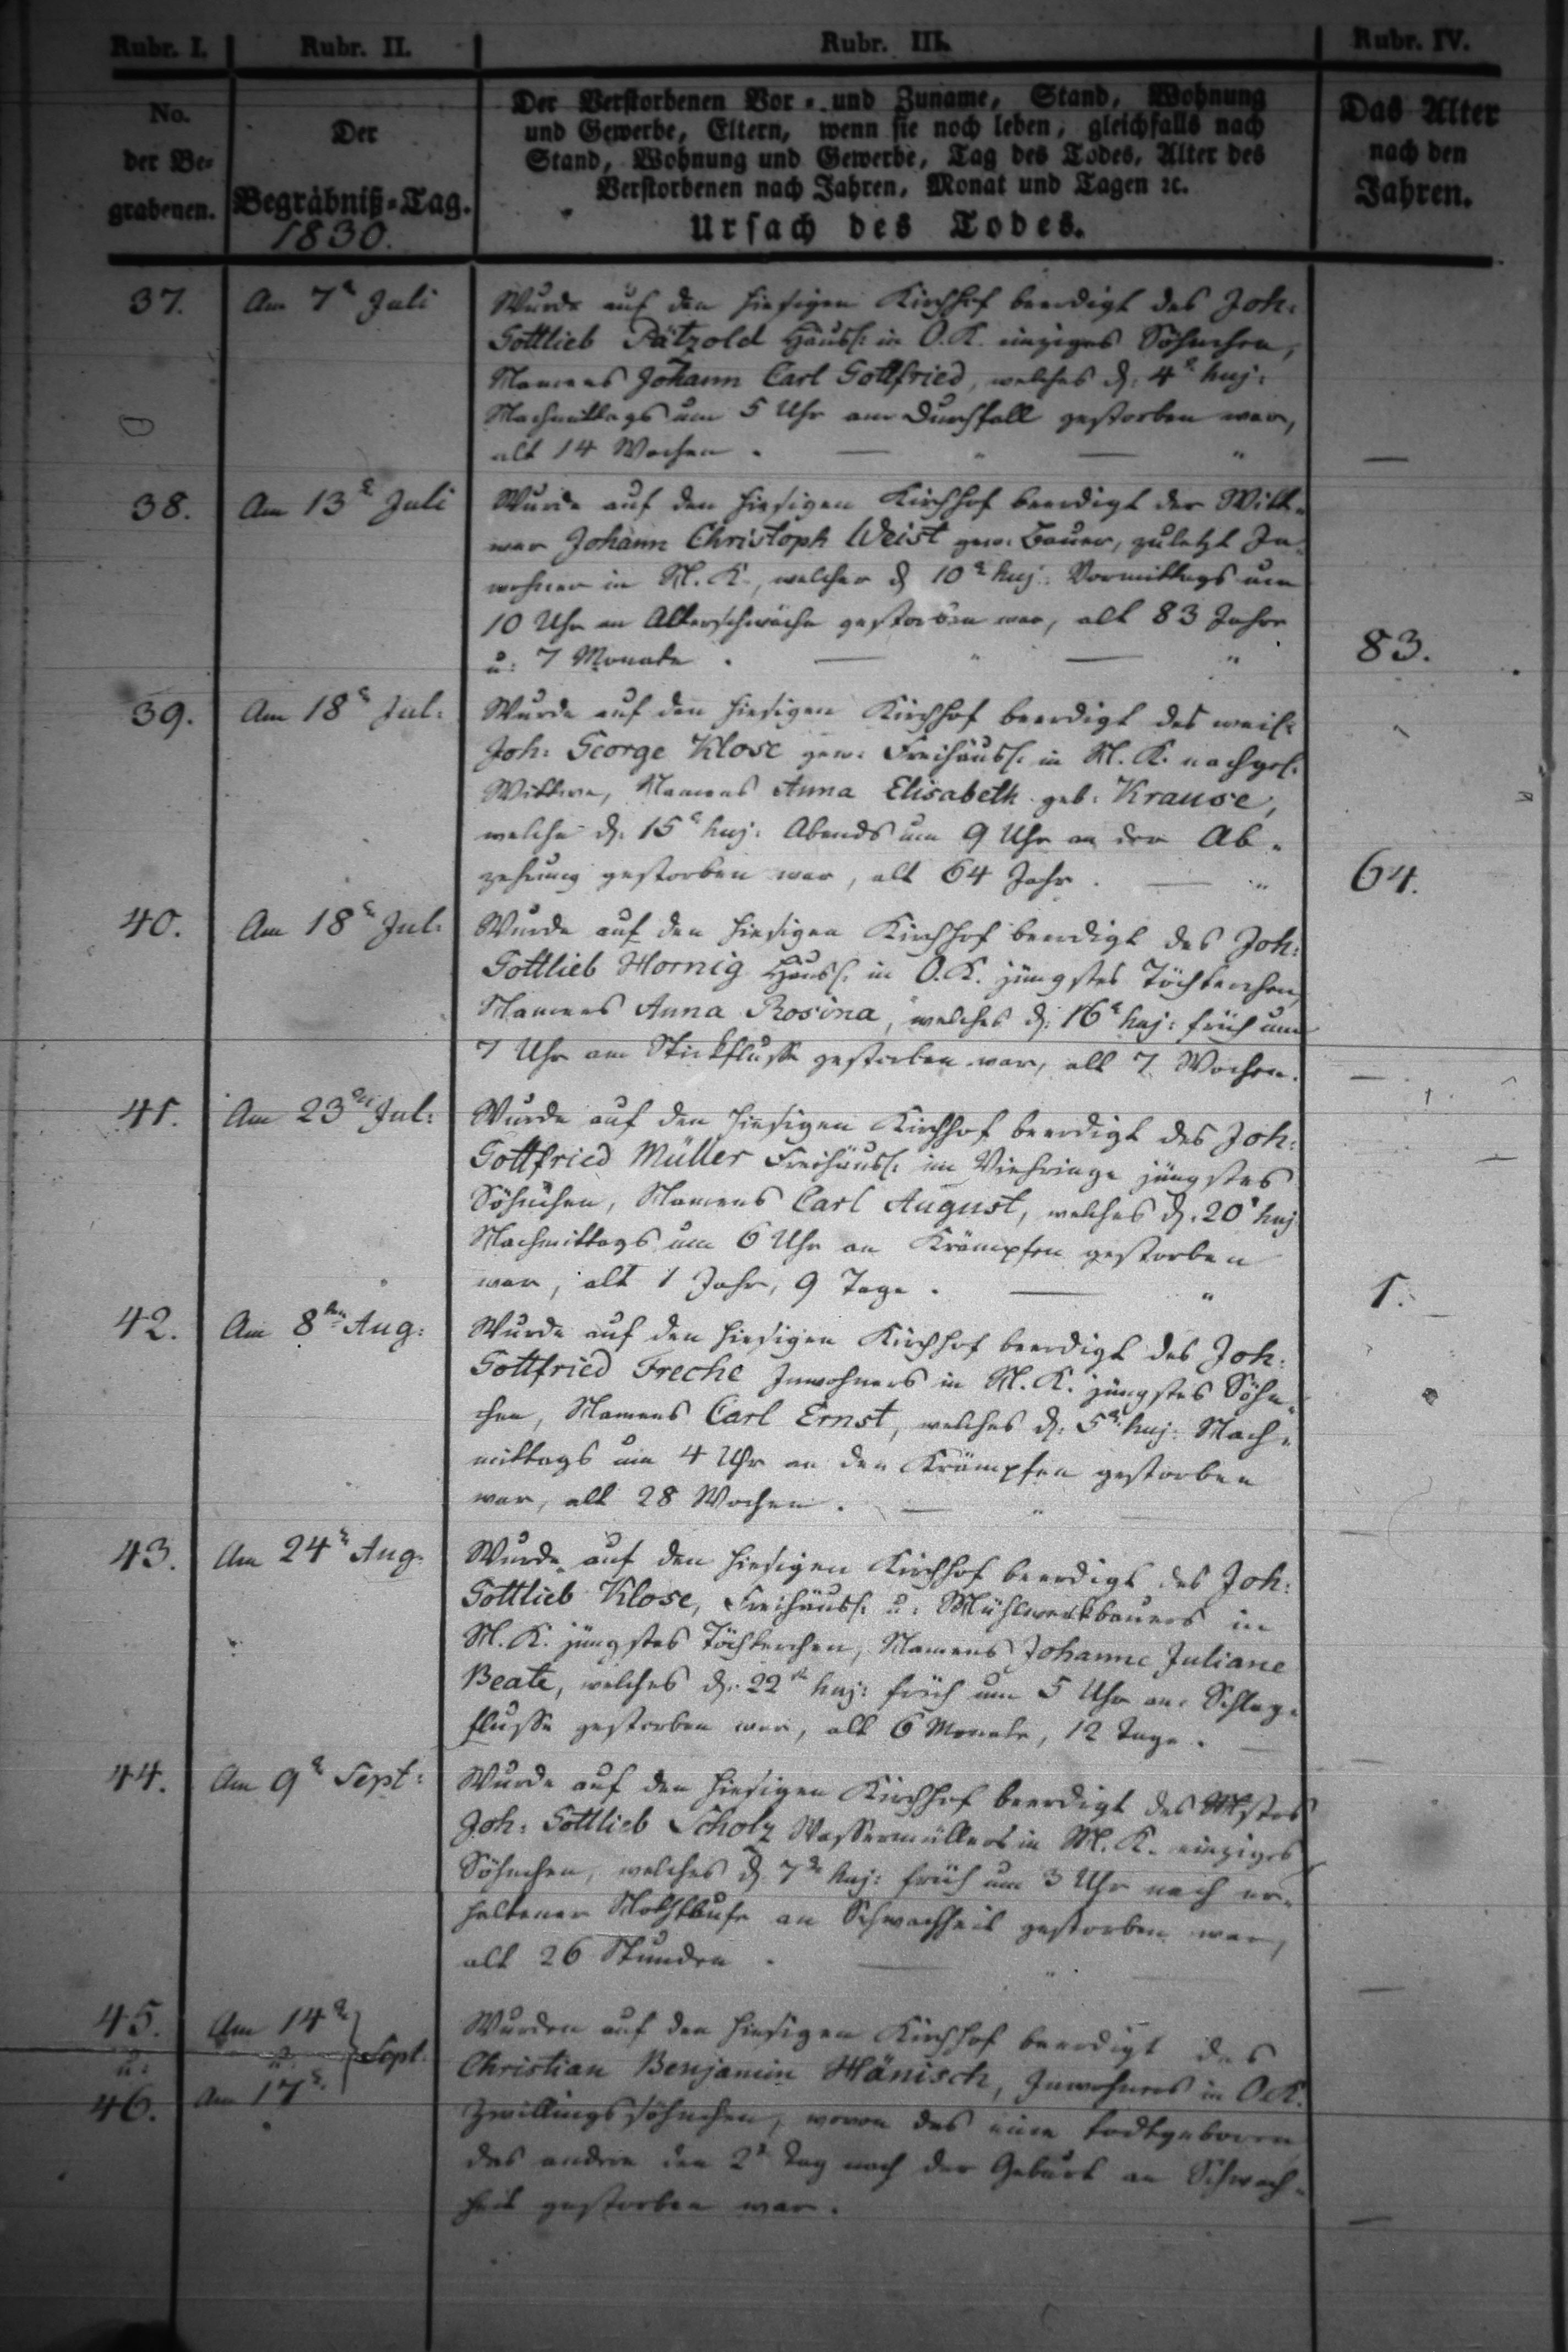 Rubr. I. Rubr. II. Rubr. III. Rubr. IV.
No. der Be= grabenen.
Der Begräbniß=Tag. 1830.
Der Verstorbenen Vor= und Zuname, Stand, Wohnung
und Gewerbe, Eltern, wenn sie noch leben, gleichfalls nach
Stand, Wohnung und Gewerbe, Tag des Todes, Alter des
Verstorbenen nach Jahren, Monat und Tagen ꝛc.
Ursach des Todes.
Das Alter nach den Jahren.
37. Am 7t Juli Wurde auf den hiesigen Kirchhof beerdigt des Joh:
Gottlieb Pätzold Häusl: in O.K. einziges Söhnchen,
Namens Johann Carl Gottfried, welches d: 4t huj:
Nachmittags um 5 Uhr am Durchfall gestorben war,
alt 14 Wochen. — " — " —
38. Am 13t Juli Wurde auf den hiesigen Kirchhof beerdigt der Witt=
wer Johann Christoph Weist gew: Bauer, zuletzt In=
wohner in M.K., welcher d 10t huj: Vormittags um
10 Uhr an Altersschwäche gestorben war, alt 83 Jahre
u: 7 Monate. — " — " 83.
39. Am 18t Jul: Wurde auf den hiesigen Kirchhof beerdigt des weil:
Joh: George Klose gew: Freihäusl: in M.K. nachgel:
Wittwe, Namens Anna Elisabeth geb: Krause,
welche d: 15t huj: Abends um 9 Uhr an der Ab=
zehrung gestorben war, alt 64 Jahr. — " 64.
40. Am 18t Jul: Wurde auf den hiesigen Kirchhof beerdigt des Joh:
Gottlieb Hornig Häusl: in O.K. jüngstes Töchterchen,
Namens Anna Rosina, welches d: 16t huj: früh um
7 Uhr am Stickflusse gestorben war, alt 7 Wochen. —
41. Am 23ten Jul: Wurde auf den hiesigen Kirchhof beerdigt des Joh:
Gottfried Müller Freihäusl: im Viehringe jüngstes
Söhnchen, Namens Carl August, welches d: 20t huj
Nachmittags um 6 Uhr an Krämpfen gestorben
war, alt 1 Jahr, 9 Tage. — " 1.
42. Am 8ten Aug: Wurde auf den hiesigen Kirchhof beerdigt des Joh:
Gottfried Freche Inwohners in M.K. jüngstes Söhn=
chen, Namens Carl Ernst, welches d: 5t huj: Nach=
mittags um 4 Uhr an den Krämpfen gestorben
war, alt 28 Wochen. — " —
43. Am 24t Aug: Wurde auf den hiesigen Kirchhof beerdigt des Joh:
Gottlieb Klose, Freihäusl: u: Mühlwerkbauers in
M.K. jüngstes Töchterchen, Namens Johanne Juliane
Beate, welches d: 22t huj: früh um 5 Uhr am Schlag=
flusse gestorben war, alt 6 Monate, 12 Tage. — —
44. Am 9t Sept: Wurde auf den hiesigen Kirchhof beerdigt des Mstrs
Joh: Gottlieb Scholz Wassermüllers in M.K. einziges
Söhnchen, welches d 7t huj: früh um 3 Uhr nach er=
haltener Nothtaufe an Schwachheit gestorben war,
alt 26 Stunden. — " —
45. u: 46. Am 14t u. Am 17t Sept: Wurden auf den hiesigen Kirchhof beerdigt des
Christian Benjamin Hänisch, Inwohners in O.K.
Zwillingssöhnchen, wovon das eine todtgeboren
das andere den 2t Tag nach der Geburt an Schwach=
heit gestorben war. —